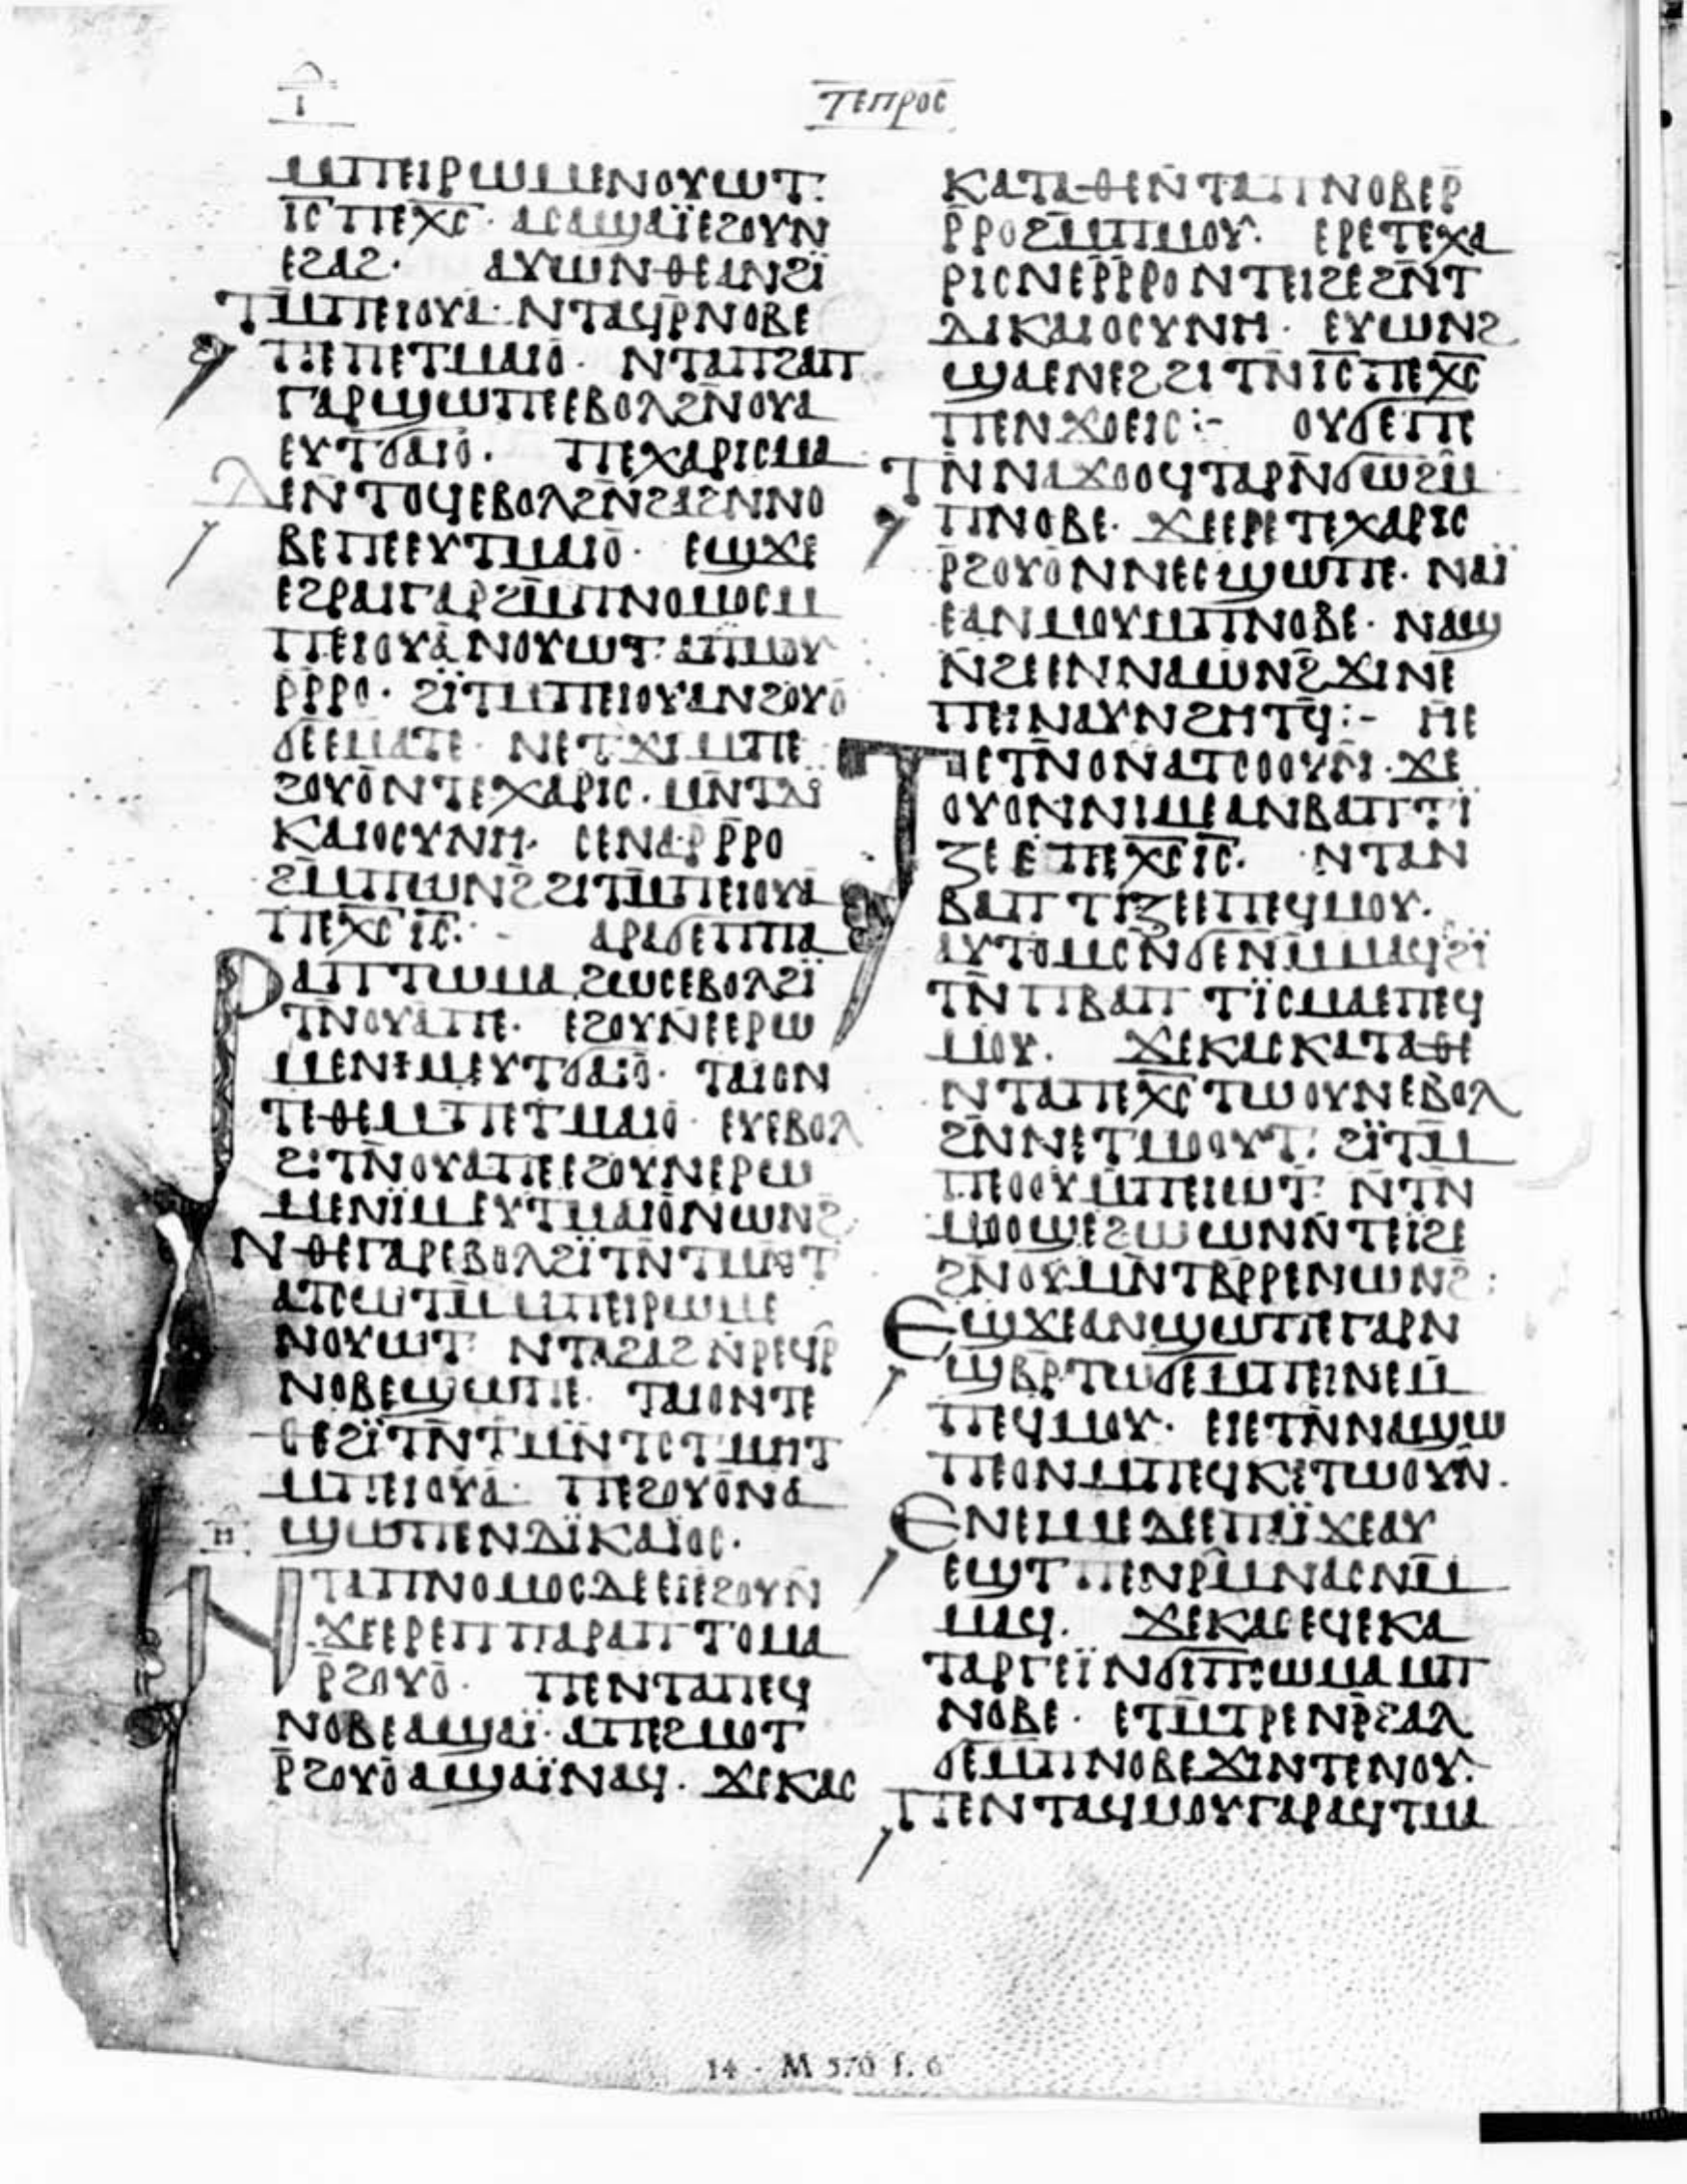 ⲓ
ⲧⲉⲡⲣⲟⲥ
ⲙⲡⲉⲓⲣⲱⲙⲉⲛⲟⲩⲱⲧ·
ⲓ̅ⲥ̅ⲡⲉⲭ̅ⲥ̅· ⲁⲥⲁϣⲁⲓ̈ⲉϩⲟⲩⲛ
ⲉϩⲁϩ· ⲁⲩⲱⲛⲑⲉⲁⲛϩⲓ̈
ⲧⲙ̅ⲡⲉⲓⲟⲩⲁ· ⲛⲧⲁϥⲣ̅ⲛⲟⲃⲉ
ⲡⲉⲡⲉⲧⲙⲁⲓⲟ̄· ⲛⲧⲁⲡϩⲁⲡ
ⲅⲁⲣϣⲱⲡⲉⲉⲃⲟⲗϩⲛ̅ⲟⲩⲁ
ⲉⲩⲧϭⲁⲓⲟ̄· ⲡⲉⲭⲁⲣⲓⲥⲙⲁ
ⲇⲉⲛⲧⲟϥⲉⲃⲟⲗϩⲛ̅ϩⲁϩⲛⲛⲟ
ⲃⲉⲡⲉⲉⲩⲧⲙⲁⲓⲟ̄· ⲉϣϫⲉ
ⲉϩⲣⲁⲓⲅⲁⲣϩⲙ̅ⲡⲛⲟⲙⲟⲥⲙ
ⲡⲉⲓⲟⲩⲁ̄ⲛⲟⲩⲱⲧ· ⲁⲡⲙⲟⲩ
ⲣ̅ⲣ̅ⲣⲟ· ϩⲓ̈ⲧⲙ̅ⲡⲉⲓⲟⲩⲁⲛϩⲟⲩⲟ̄
ϭⲉⲉⲙⲁⲧⲉ· ⲛⲉⲧϫⲓⲙⲡⲉ
ϩⲟⲩⲟ̄ⲛⲧⲉⲭⲁⲣⲓⲥ· ⲙⲛ̅ⲧⲇⲓ̈
ⲕⲁⲓⲟⲥⲩⲛⲏ· ⲥⲉⲛⲁⲣ̅ⲣ̅ⲣⲟ
ϩⲙ̅ⲡⲱⲛϩ̅ϩⲓⲧⲙ̅ⲡⲉⲓⲟⲩⲁ
ⲡⲉⲭ̅ⲥ̅ⲓ̅ⲥ̅:- ⲁⲣⲁϭⲉⲡⲡⲁ
ⲣⲁⲡⲧⲱⲙⲁ ϩⲱⲥⲉⲃⲟⲗϩⲓ̈
ⲧⲛ̅ⲟⲩⲁⲡⲉ· ⲉϩⲟⲩⲛⲉⲉⲣⲱ
ⲙⲉⲛⲓⲙⲉⲩⲧϭⲁⲓⲟ̄· ⲧⲁⲓⲟⲛ
ⲧⲉⲑⲉⲙⲡⲉⲧⲙⲁⲓⲟ̄· ⲉⲩⲉⲃⲟⲗ
ϩⲓⲧⲛ̅ⲟⲩⲁⲡⲉⲉϩⲟⲩⲛⲉⲣⲱ
ⲙⲉⲛⲓ̈ⲙⲉⲩⲧⲙⲁⲓⲟ̄ⲛⲱⲛϩ
ⲛⲑⲉⲅⲁⲣⲉⲃⲟⲗϩⲓ̈ⲧⲛ̅ⲧⲙⲛⲧ
ⲁⲧⲥⲱⲧⲙ̅ⲙⲡⲉⲓⲣⲱⲙⲉ
ⲛⲟⲩⲱⲧ· ⲛⲧⲁϩⲁϩⲛ̅ⲣⲉϥⲣ̅
ⲛⲟⲃⲉϣⲱⲡⲉ· ⲧⲁⲓⲟⲛⲧⲉ
ⲑⲉϩⲓ̈ⲧⲛ̅ⲧⲙⲛ̅ⲧⲥⲧⲙⲏⲧ
ⲙⲡⲉⲓⲟⲩⲁ̄· ⲡⲉϩⲟⲩⲟ̄ⲛⲁ
ϣⲱⲡⲉⲛⲇⲓ̈ⲕⲁⲓ̈ⲟⲥ·
ⲏ
ⲛⲧⲁⲡⲛⲟⲙⲟⲥⲇⲉⲉⲓⲉϩⲟⲩⲛ
ϫⲉⲉⲣⲉⲡⲡⲁⲣⲁⲡⲧⲟⲙⲁ
ⲣ̅ϩⲟⲩⲟ̄· ⲡⲉⲛⲧⲁⲡⲉϥ
ⲛⲟⲃⲉⲁϣⲁⲓ̈· ⲁⲡⲉϩⲙⲟⲧ
ⲣ̅ϩⲟⲩⲟ̄ⲁϣⲁⲓ̈ⲛⲁϥ· ϫⲉⲕⲁⲥ
ⲕⲁⲧⲁⲑⲉⲛ̅ⲧⲁⲡⲛⲟⲃⲉⲣ̅
ⲣ̅ⲣⲟϩⲙ̅ⲡⲙⲟⲩ· ⲉⲣⲉⲧⲉⲭⲁ
ⲣⲓⲥⲛⲉⲣ̅ⲣ̅ⲣⲟⲛⲧⲉⲓϩⲉϩⲛ̅ⲧ
ⲇⲓⲕⲁⲓⲟⲥⲩⲛⲏ· ⲉⲩⲱⲛϩ
ϣⲁⲉⲛⲉϩϩⲓⲧⲛ̅ⲓ̅ⲥ̅ⲡⲉⲭ̅ⲥ̅
ⲡⲉⲛϫⲟⲉⲓⲥ:- ⲟⲩϭⲉⲡⲉ
ⲧⲛ̅ⲛⲁϫⲟⲟϥⲧⲁⲣⲛ̅ϭⲱϩⲙ̅
ⲡⲛⲟⲃⲉ· ϫⲉⲉⲣⲉⲧⲉⲭⲁⲣⲓⲥ
ⲣ̅ϩⲟⲩⲟ̄ⲛⲛⲉⲥϣⲱⲡⲉ· ⲛⲁⲓ̈
ⲉⲁⲛⲙⲟⲩⲙⲡⲛⲟⲃⲉ· ⲛⲁϣ
ⲛ̅ϩⲉⲉⲛⲛⲁⲱⲛϩ̅ϫⲓⲛⲉ
ⲡⲉⲓⲛⲁⲩⲛϩⲏⲧϥ̅:- ⲏⲉ
ⲧⲉⲧⲛ̅ⲟⲛⲁⲧⲥⲟⲟⲩⲛ· ϫⲉ
ⲟⲩⲟⲛⲛⲓⲙⲉⲁⲛⲃⲁⲡⲧⲓ̈
ⲍⲉⲉⲡⲉⲭ̅ⲥ̅ⲓ̅ⲥ̅· ⲛⲧⲁⲛ
ⲃⲁⲡⲧⲓⲍⲉⲉⲡⲉϥⲙⲟⲩ·
ⲁⲩⲧⲟⲙⲥⲛ̅ϭⲉⲛⲙ̅ⲙⲁϥϩⲓ̈
ⲧⲛ̅ⲡⲃⲁⲡⲧⲓ̈ⲥⲙⲁⲉⲡⲉϥ
ⲙⲟⲩ· ϫⲉⲕⲁⲥⲕⲁⲧⲁⲑⲉ
ⲛⲧⲁⲡⲉⲭ̅ⲥ̅ⲧⲱⲟⲩⲛⲉⲃⲟⲗ
ϩⲛ̅ⲛⲉⲧⲙⲟⲟⲩⲧ· ϩⲓ̈ⲧⲙ̅
ⲡⲉⲟⲟⲩⲙⲡⲉⲓⲱⲧ· ⲛⲧⲛ̅
ⲙⲟⲟϣⲉϩⲱⲱⲛⲛ̅ⲧⲉⲓ̈ϩⲉ
ϩⲛ̅ⲟⲩⲙⲛ̅ⲧⲃⲣ̅ⲣⲉⲛⲱⲛϩ̅:
ⲉϣϫⲉⲁⲛϣⲱⲡⲉⲅⲁⲣⲛ
ϣⲃⲣ̅ⲧⲱϭⲉⲙⲡⲉⲓⲛⲉⲙ̅
ⲡⲉϥⲙⲟⲩ· ⲉⲓⲉⲧⲛ̅ⲛⲁϣⲱ
ⲡⲉⲟⲛⲙⲡⲉϥⲕⲉⲧⲱⲟⲩⲛ·
ⲉⲛⲉⲓⲙⲉⲇⲉⲉⲡⲁⲓ̈ϫⲉⲁⲩ
ⲉϣⲧⲡⲉⲛⲣⲙ̅ⲛⲁⲥⲛⲙ̅
ⲙⲁϥ· ϫⲉⲕⲁⲥⲉϥⲉⲕⲁ
ⲧⲁⲣⲅⲉⲓ̈ⲛϭⲓⲡⲥⲱⲙⲁⲙⲡ
ⲛⲟⲃⲉ· ⲉⲧⲙ̅ⲧⲣⲉⲛⲣ̅ϩⲁⲗ
ϭⲉⲙⲡⲛⲟⲃⲉϫⲓⲛⲧⲉⲛⲟⲩ·
ⲡⲉⲛⲧⲁϥⲙⲟⲩⲅⲁⲣⲁϥⲧⲙⲁ
14 - M 570 f. 6